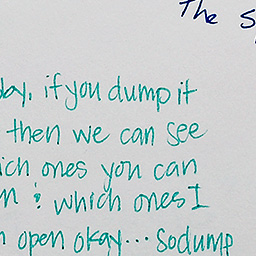 the
if you dump it
then we can see
ones you can
& which ones I
open okay... So dump